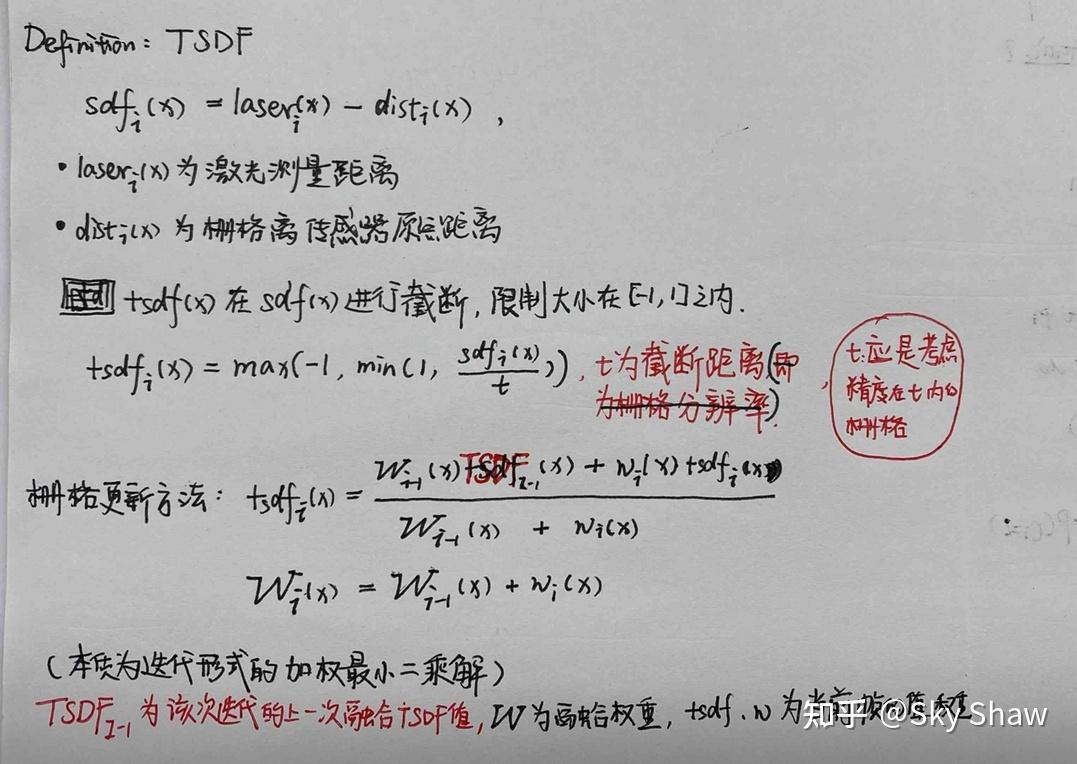 Definition: TSDF
sdfᵢ(x) = laserᵢ(x) − distᵢ(x) ,
• laserᵢ(x) 为激光测量距离
• distᵢ(x) 为栅格离传感器原点距离
tsdf(x) 在 sdf(x) 进行截断, 限制大小在 [-1, 1] 之内.
tsdfᵢ(x) = max(-1, min(1, sdfᵢ(x) / t)), t为截断距离(即
为栅格分辨率).
t应是考虑
精度在t内的
栅格
栅格更新方法: tsdfᵢ(x) = (Wᵢ₋₁(x) TSDFᵢ₋₁(x) + wᵢ(x) tsdfᵢ(x)) / (Wᵢ₋₁(x) + wᵢ(x))
Wᵢ(x) = Wᵢ₋₁(x) + wᵢ(x)
(本质为迭代形式的加权最小二乘解)
TSDFᵢ₋₁ 为该次迭代的上一次融合TSDF值, W为融合权重, tsdf. w 为当前
知乎 @Sky Shaw